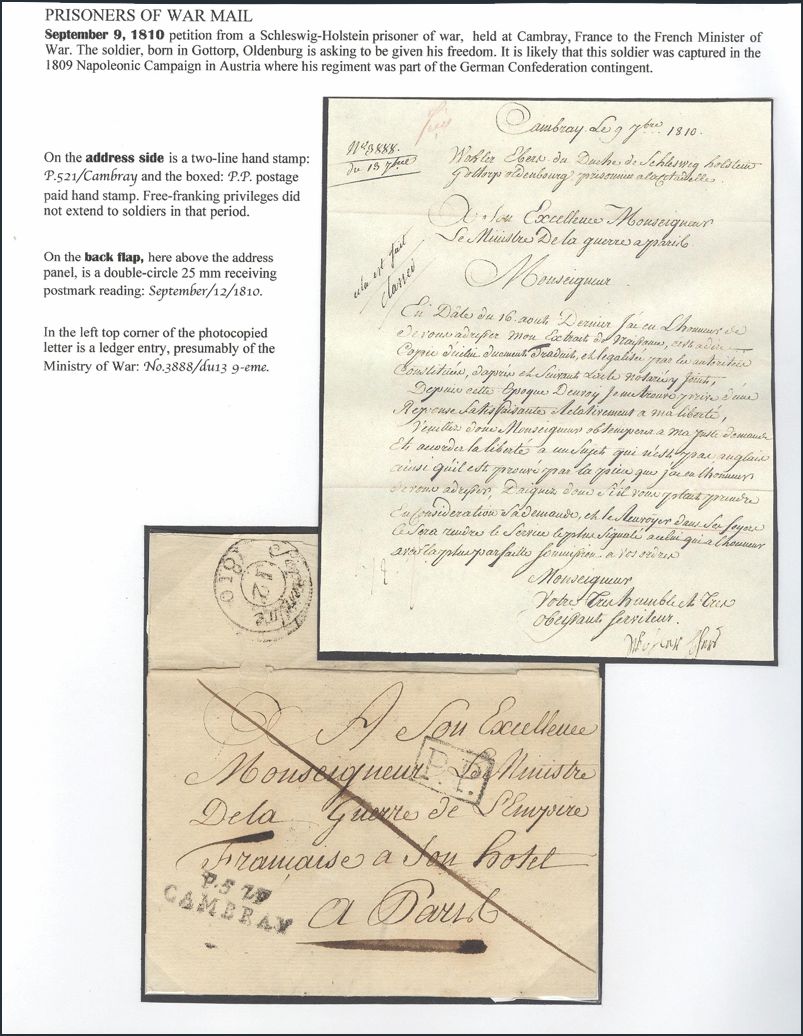 PRISONERS OF WAR MAIL
September 9, 1810 petition from a Schleswig-Holstein prisoner of war, held at Cambray, France to the French Minister of
War. The soldier, born in Gottorp, Oldenburg is asking to be given his freedom. It is likely that this soldier was captured in the
1809 Napoleonic Campaign in Austria where his regiment was part of the German Confederation contingent.
On the address side is a two-line hand stamp:
P.521/Cambray and the boxed: P.P. postage
paid hand stamp. Free-franking privileges did
not extend to soldiers in that period.
On the back flap, here above the address
panel, is a double-circle 25 mm receiving
postmark reading: September/12/1810.
In the left top corner of the photocopied
letter is a ledger entry, presumably of the
Ministry of War: No.3888/du13 9-eme.
Cambray Le 9 7bre 1810.
No 3888.
du 13 7bre
Wohler Ebers du Duche de Schleswig holstein
Gottorp oldenbourg prisonnier a la Citadelle.
A Son Excellence Monseigneur
Le Ministre De la guerre a paris
cela est fait
classer
Monseigneur
En Date du 16. aout Dernier J'ai eu L'honneur de
de vous adresser mon Extrait de naissance, cest adire
Copie d'icelui duement traduit, et legalisé par les autorités
Constitués, d'apres et suivant L'acte notarié y Joint,
Depuis cette Epoque Denvoy Je me trouve privé d'une
Reponse Satisfaisante Relativement a ma liberté,
Veuillez donc Monseigneur obtemperer a ma juste demande
Et accorder la liberté a un Sujet qui n'est pas anglais
ainsi qu'il est prouvé par la piece que j'ai eu l'honneur
de vous adresser, Daignez donc s'il vous plait prendre
En Consideration Sa demande, et le Renvoyer dans Ses foyers
ce Sera rendre le Service le plus Signalé a celui qui a l'honneur
avec la plus parfaite Soumission a vos ordres
Monseigneur
Votre Tres humble et Tres
obeissant Serviteur.
Septembre
12
1810
A Son Excellence
Monseigneur Le Ministre
P.P.
De la Guerre de L'Empire
Française a Son hotel
a Paris
P.5 21
CAMBRAY